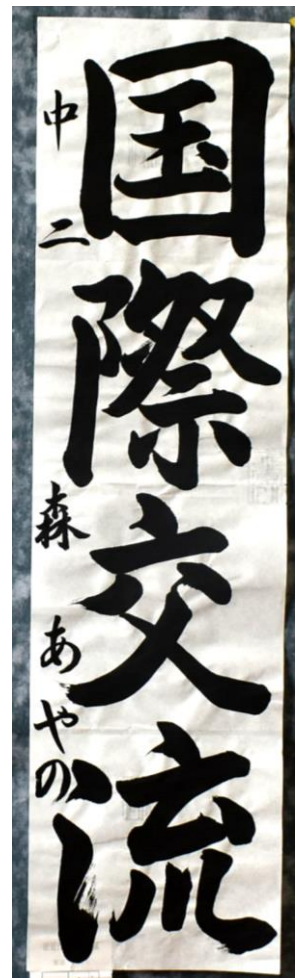 国際交流
中二 森 あやの